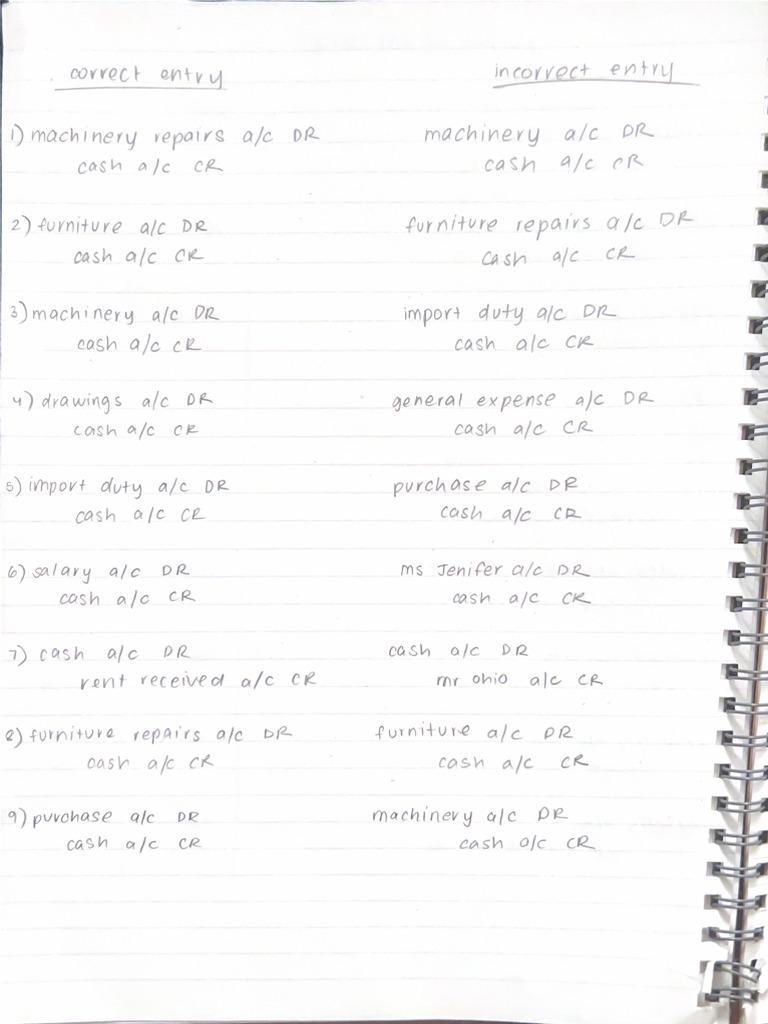 correct entry    incorrect entry
1) machinery repairs a/c DR    machinery a/c DR
cash a/c CR    cash a/c CR
2) furniture a/c DR    furniture repairs a/c DR
cash a/c CR    cash a/c CR
3) machinery a/c DR    import duty a/c DR
cash a/c CR    cash a/c CR
4) drawings a/c DR    general expense a/c DR
cash a/c CR    cash a/c CR
5) import duty a/c DR    purchase a/c DR
cash a/c CR    cash a/c CR
6) salary a/c DR    ms Jenifer a/c DR
cash a/c CR    cash a/c CR
7) cash a/c DR    cash a/c DR
rent received a/c CR    mr ohio a/c CR
8) furniture repairs a/c DR    furniture a/c DR
cash a/c CR    cash a/c CR
9) purchase a/c DR    machinery a/c DR
cash a/c CR    cash a/c CR